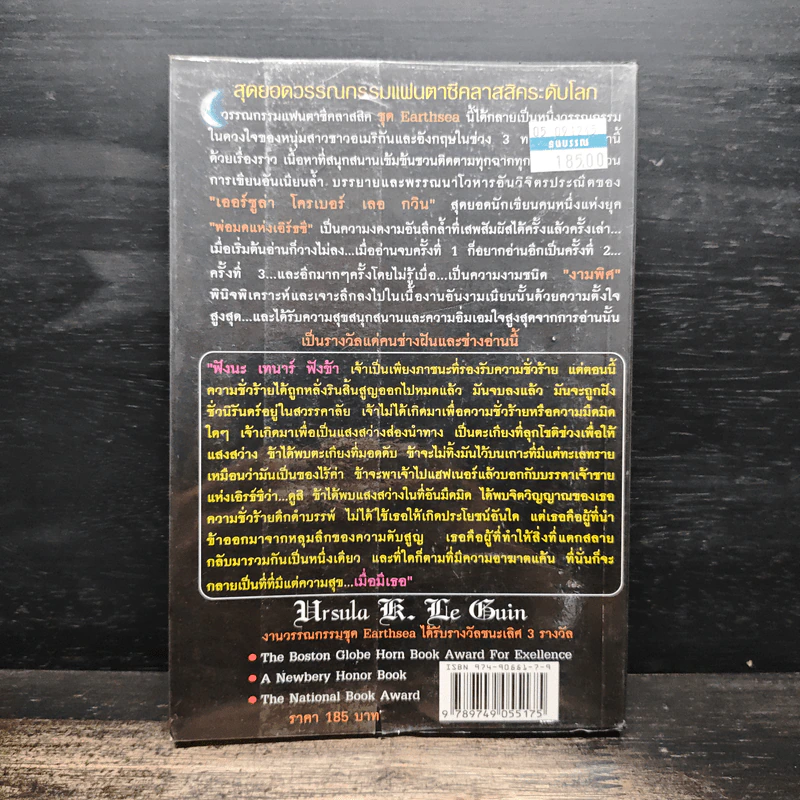 สุดยอดวรรณกรรมแฟนตาซีคลาสสิคระดับโลก
วรรณกรรมแฟนตาซีคลาสสิค ชุด Earthsea นี้ได้กลายเป็นหนึ่งวรรณกรรม
ในดวงใจของหนุ่มสาวชาวอเมริกันและอังกฤษในช่วง 3
ด้วยเรื่องราว เนื้อหาที่สนุกสนานเข้มข้นชวนติดตามทุกฉากทุก
การเขียนอันเนียนล้ำ บรรยายและพรรณนาโวหารอันวิจิตรประณีตของ
"เออร์ซูล่า โครเบอร์ เลอ กวิน" สุดยอดนักเขียนคนหนึ่งแห่งยุค
"พ่อมดแห่งเอิร์ธซี" เป็นความงดงามอันลึกล้ำที่เสพสัมผัสได้ครั้งแล้วครั้งเล่า...
เมื่อเริ่มต้นอ่านก็วางไม่ลง...เมื่ออ่านจบครั้งที่ 1 ก็อยากอ่านอีกเป็นครั้งที่ 2...
ครั้งที่ 3...และอีกมากๆครั้งโดยไม่รู้เบื่อ...เป็นความงามชนิด "งามพิศ"
พินิจพิเคราะห์และเจาะลึกลงไปในเนื้องานอันงามเนียนนั้นด้วยความตั้งใจ
สูงสุด...และได้รับความสุขสนุกสนานและความอิ่มเอมใจสูงสุดจากการอ่านนั้น
เป็นรางวัลแด่คนช่างฝันและช่างอ่านนี้
185.00
"ฟังนะ เทนาร์ ฟังข้า เจ้าเป็นเพียงภาชนะที่รองรับความชั่วร้าย แต่ตอนนี้
ความชั่วร้ายได้ถูกหลั่งรินสิ้นสูญออกไปหมดแล้ว มันจบลงแล้ว มันจะถูกฝัง
ชั่วนิรันดร์อยู่ในสวรรคาลัย เจ้าไม่ได้เกิดมาเพื่อความชั่วร้ายหรือความมืดมิด
ใดๆ เจ้าเกิดมาเพื่อเป็นแสงสว่างส่องนำทาง เป็นตะเกียงที่ลุกโชติช่วงเพื่อให้
แสงสว่าง ข้าได้พบตะเกียงที่มอดดับ ข้าจะไม่ทิ้งมันไว้บนเกาะที่มีแต่ทะเลทราย
เหมือนว่ามันเป็นของไร้ค่า ข้าจะพาเจ้าไปแฮฟเนอร์แล้วบอกกับบรรดาเจ้าชาย
แห่งเอิร์ธซีว่า...ดูสิ ข้าได้พบแสงสว่างในที่อันมืดมิด ได้พบจิตวิญญาณของเธอ
ความชั่วร้ายดึกดำบรรพ์ ไม่ได้ใช้เธอให้เกิดประโยชน์อันใด แต่เธอคือผู้ที่นำ
ข้าออกมาจากหลุมลึกของความดับสูญ เธอคือผู้ที่ทำให้สิ่งที่แตกสลาย
กลับมารวมกันเป็นหนึ่งเดียว และที่ใดก็ตามที่มีความอาฆาตแค้น ที่นั่นก็จะ
กลายเป็นที่ที่มีแต่ความสุข...เมื่อมีเธอ"
Ursula K. Le Guin
งานวรรณกรรมชุด Earthsea ได้รับรางวัลชนะเลิศ 3 รางวัล
The Boston Globe Horn Book Award For Exellence
A Newbery Honor Book
The National Book Award
ราคา 185 บาท
ISBN 974-90551-7-9
9 789749 055175